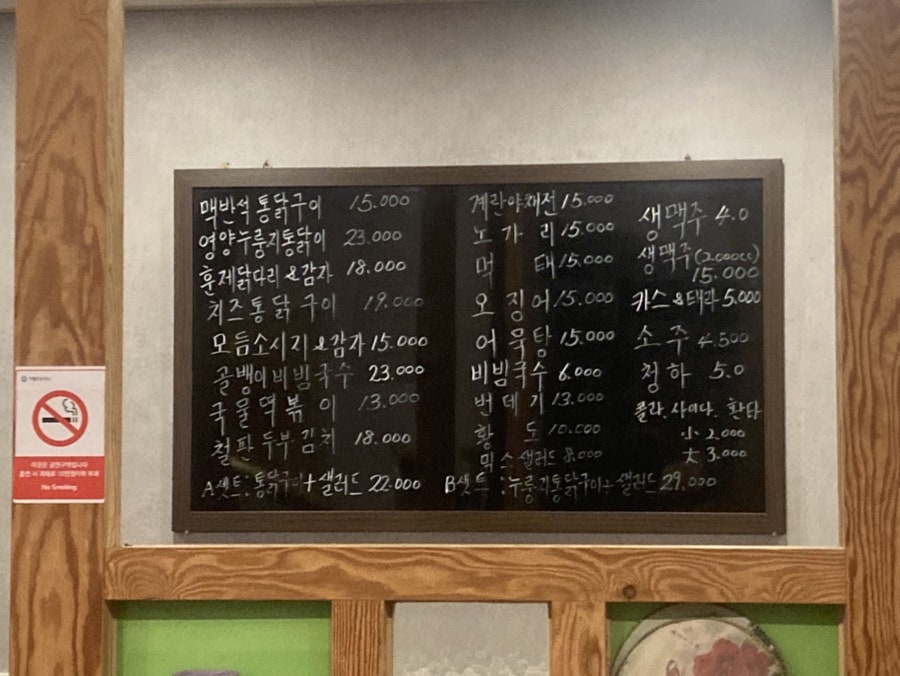 맥반석통닭구이 15.000
영양누룽지통닭이 23.000
훈제닭다리&감자 18.000
치즈통닭구이 19.000
모듬소시지&감자 15.000
골뱅이비빔국수 23.000
국물떡볶이 13.000
철판두부김치 18.000
A셋트:통닭구이+샐러드 22.000
계란야채전 15.000
노가리 15.000
먹태 15.000
오징어 15.000
어묵탕 15.000
비빔국수 6.000
번데기 13.000
황도 10.000
믹스샐러드 8.000
B셋트:누룽지통닭구이+샐러드 29.000
생맥주 4.0
생맥주(2000cc)
15.000
카스&테라 5.000
소주 4.500
청하 5.0
콜라.사이다.환타
小 2.000
大 3.000
이곳은 금연구역입니다
No Smoking